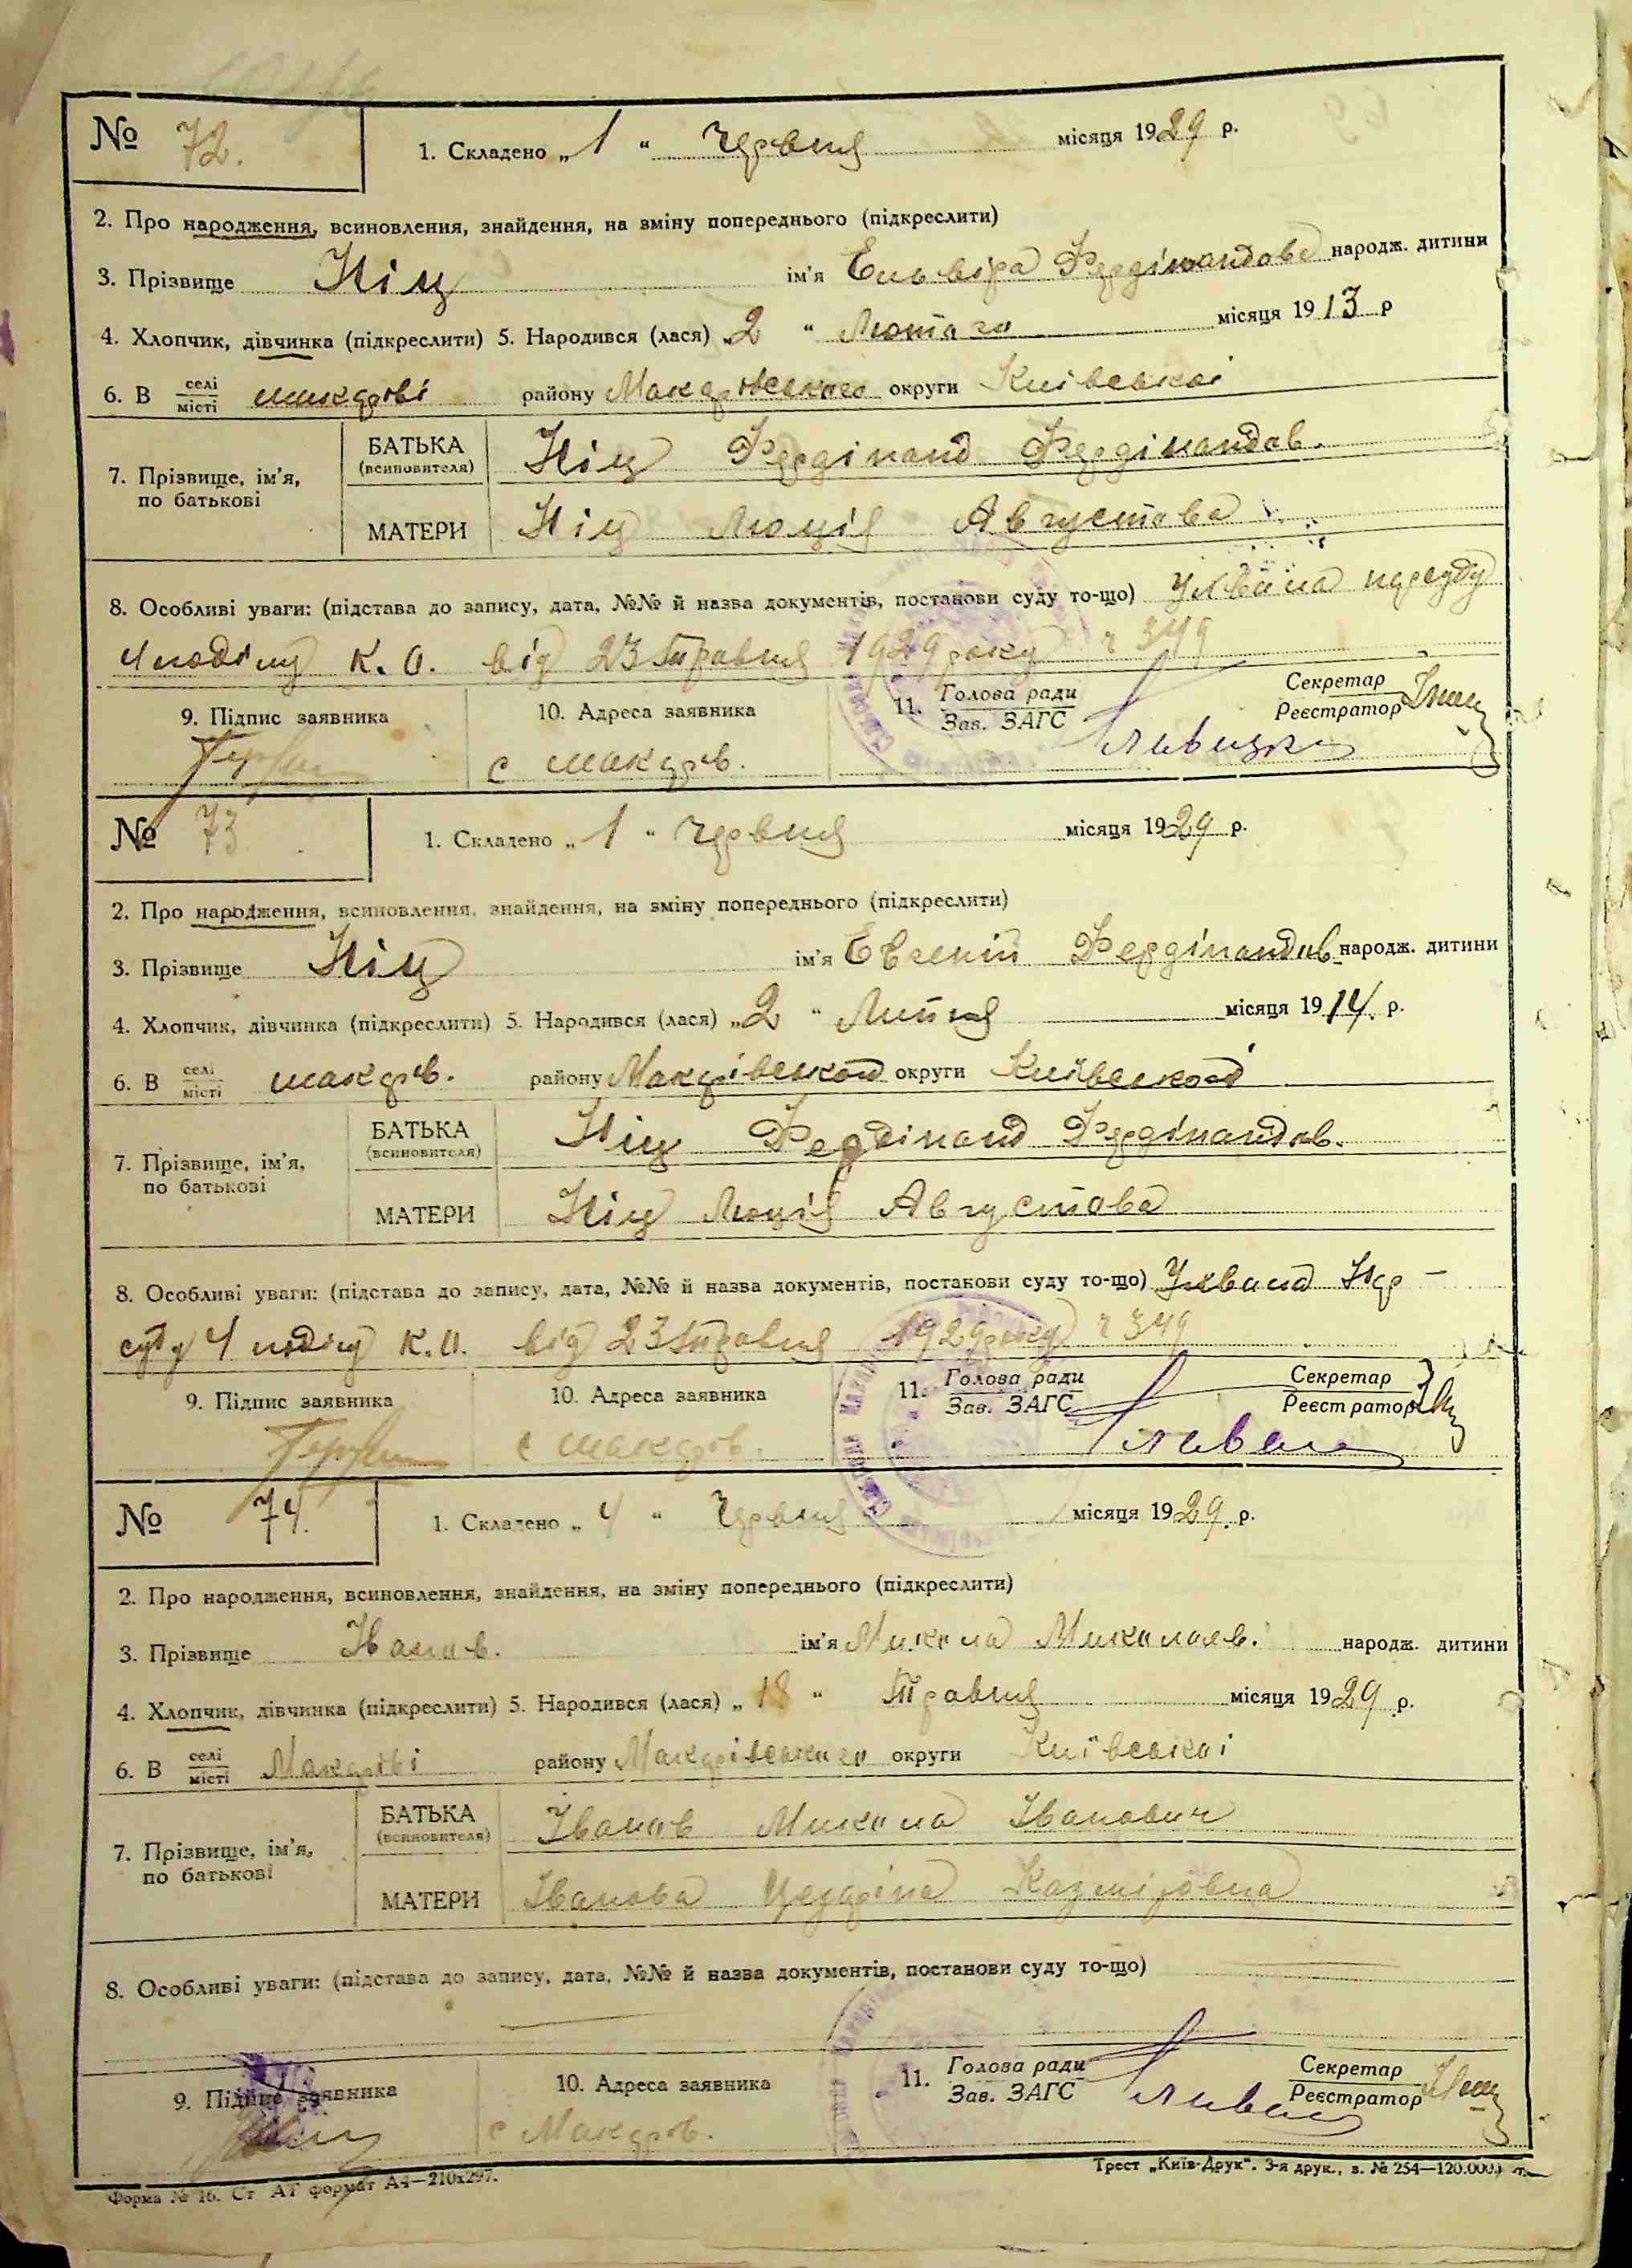 № 72. 1. Складено „ 1 “ червня місяця 1929 р.
2. Про народження, всиновлення, знайдення, на зміну попереднього (підкреслити)
3. Прізвище Ніц ім'я Ельвіра Фердінандова народж. дитини
4. Хлопчик, дівчинка (підкреслити) 5. Народився (лася) „ 2 “ Лютого місяця 1913 р
6. В селі/місті макарові району Макарівського округи Київської
7. Прізвище, ім'я, по батькові
БАТЬКА (всиновителя) Ніц Фердінанд Фердінандов.
МАТЕРИ Ніц Люція Августова
8. Особливі уваги: (підстава до запису, дата, №№ й назва документів, постанови суду то-що) Ухвала нарсуду
4 поділу К. О. від 23 травня 1929 року ч 349
9. Підпис заявника 10. Адреса заявника 11. Голова ради/Зав. ЗАГС Секретар/Реєстратор
с макарів.
№ 73 1. Складено „ 1 “ червня місяця 1929 р.
2. Про народження, всиновлення, знайдення, на зміну попереднього (підкреслити)
3. Прізвище Ніц ім'я Евгеній Фердінандов народж. дитини
4. Хлопчик, дівчинка (підкреслити) 5. Народився (лася) „ 2 “ Липня місяця 1914. р.
6. В селі/місті макарів. району Макарівської округи Київської
7. Прізвище, ім'я, по батькові
БАТЬКА (всиновителя) Ніц Фердінанд Фердінандов.
МАТЕРИ Ніц Люція Августова
8. Особливі уваги: (підстава до запису, дата, №№ й назва документів, постанови суду то-що) Ухвала Нар-
суду 4 поділу К. О. від 23 травня 1929 року ч 349
9. Підпис заявника 10. Адреса заявника 11. Голова ради/Зав. ЗАГС Секретар/Реєстратор
с макарів.
№ 74. 1. Складено „ 4 “ Червня місяця 1929. р.
2. Про народження, всиновлення, знайдення, на зміну попереднього (підкреслити)
3. Прізвище Іванов. ім'я Микола Миколаєв. народж. дитини
4. Хлопчик, дівчинка (підкреслити) 5. Народився (лася) „ 18 “ Травня місяця 1929 р.
6. В селі/місті Макарові району Макарівського округи Київської
7. Прізвище, ім'я, по батькові
БАТЬКА (всиновителя) Іванов Микола Іванович
МАТЕРИ Іванова Казмірівна
8. Особливі уваги: (підстава до запису, дата, №№ й назва документів, постанови суду то-що)
9. Підпис заявника 10. Адреса заявника 11. Голова ради/Зав. ЗАГС Секретар/Реєстратор
с Макарів.
Форма № 16. Ст АТ формат А4—210x297. Трест „Київ-Друк“. 3-я друк., з. № 254—120.000